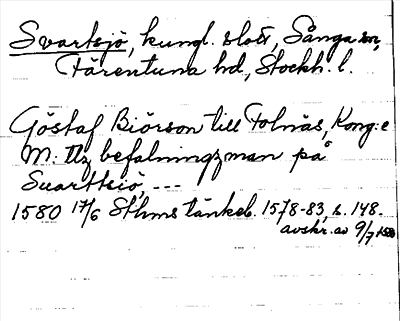 Svartsjö, kungl. slott, Sånga sn,
Färentuna hd, Stockh. l.
Göstaf Biörson till Folnäs, Kong:e
M:ttz befalningzman på
Suarttsiö, ---
1580 17/6 Sthms tänkeb. 1578-83, s. 148.
avskr. av 9/7